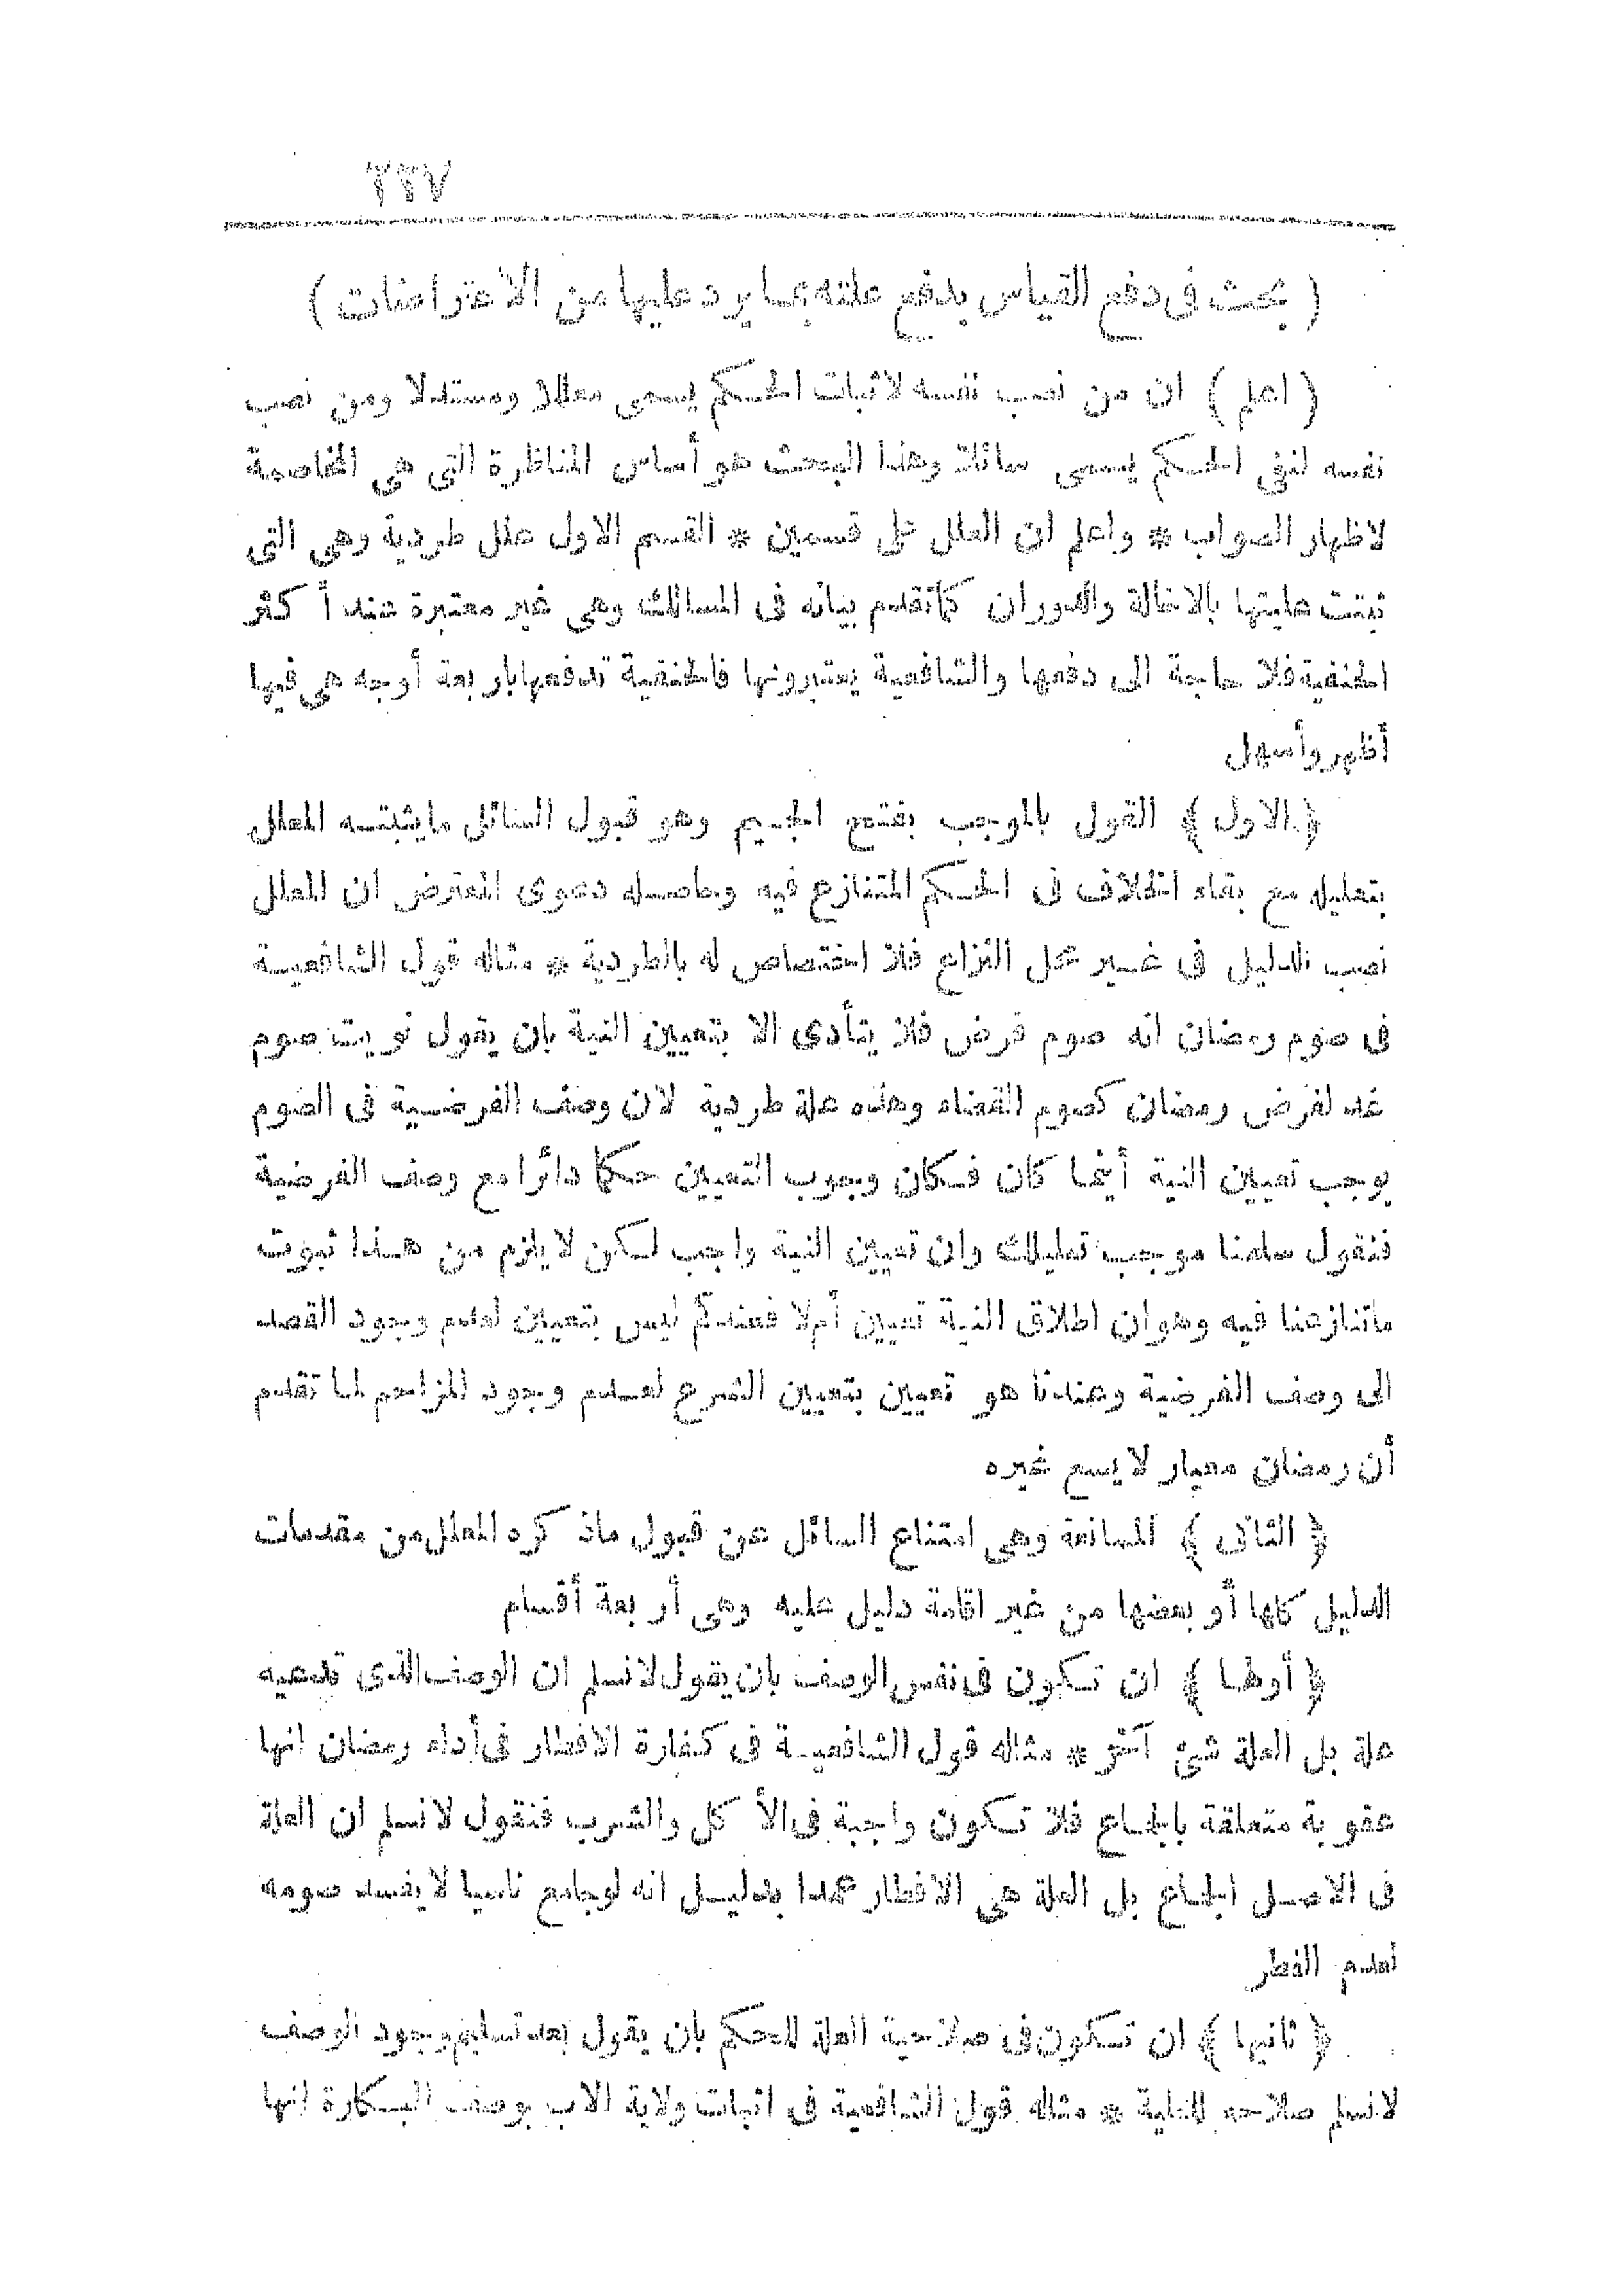 ٢٢٧
( بحث فى دفع القياس بدفع علته بما يرد عليها من الاعتراضات )
( اعلم ) ان من نصب نفسه لاثبات الحكم يسمى معللا ومستدلا ومن نصب
نفسه لنفى الحكم يسمى سائلا وهذا البحث هو أساس المناظرة التى هى المخاصمة
لاظهار الصواب * واعلم ان العلل على قسمين * القسم الاول علل طردية وهى التى
ثبتت عليتها بالاخالة والدوران كما تقدم بيانه فى المسالك وهى غير معتبرة عند أكثر
الحنفية فلا حاجة الى دفعها والشافعية يعتبرونها فالحنفية تدفعها باربعة أوجه هى فيها
أظهر وأسهل
﴿ الاول ﴾ القول بالموجب بفتح الجيم وهو قبول السائل ما يثبته المعلل
بتعليله مع بقاء الخلاف فى الحكم المتنازع فيه وحاصله دعوى المعترض ان المعلل
نصب الدليل فى غير محل النزاع فلا اختصاص له بالطردية * مثاله قول الشافعية
فى صوم رمضان انه صوم فرض فلا يتأدى الا بتعيين النية بان يقول نويت صوم
غد لفرض رمضان كصوم القضاء وهذه علة طردية لان وصف الفرضية فى الصوم
يوجب تعيين النية أينما كان فكان وجوب التعيين حكما دائرا مع وصف الفرضية
فنقول سلمنا موجب تعليلك وان تعيين النية واجب لكن لا يلزم من هذا ثبوت
ما تنازعنا فيه وهو ان اطلاق النية تعيين أم لا فعندكم ليس بتعيين لعدم وجود القصد
الى وصف الفرضية وعندنا هو تعيين بتعيين الشرع لعدم وجود المزاحم لما تقدم
أن رمضان معيار لا يسع غيره
﴿ الثانى ﴾ الممانعة وهى امتناع السائل عن قبول ماذكره المعلل من مقدمات
الدليل كلها أو بعضها من غير اقامة دليل عليه وهى أربعة أقسام
﴿ أولها ﴾ ان تكون فى نفس الوصف بان يقول لا نسلم ان الوصف الذى تدعيه
علة بل العلة شئ آخر * مثاله قول الشافعية فى كفارة الافطار فى أداء رمضان انها
عقوبة متعلقة بالجماع فلا تكون واجبة فى الأكل والشرب فنقول لا نسلم ان العلة
فى الاصل الجماع بل العلة هى الافطار عمدا بدليل انه لو جامع ناسيا لا يفسد صومه
لعدم الفطر
﴿ ثانيها ﴾ ان تكون فى صلاحية العلة للحكم بان يقول بعد تسليم وجود الوصف
لا نسلم صلاحه للعلية * مثاله قول الشافعية فى اثبات ولاية الاب بوصف البكارة انها